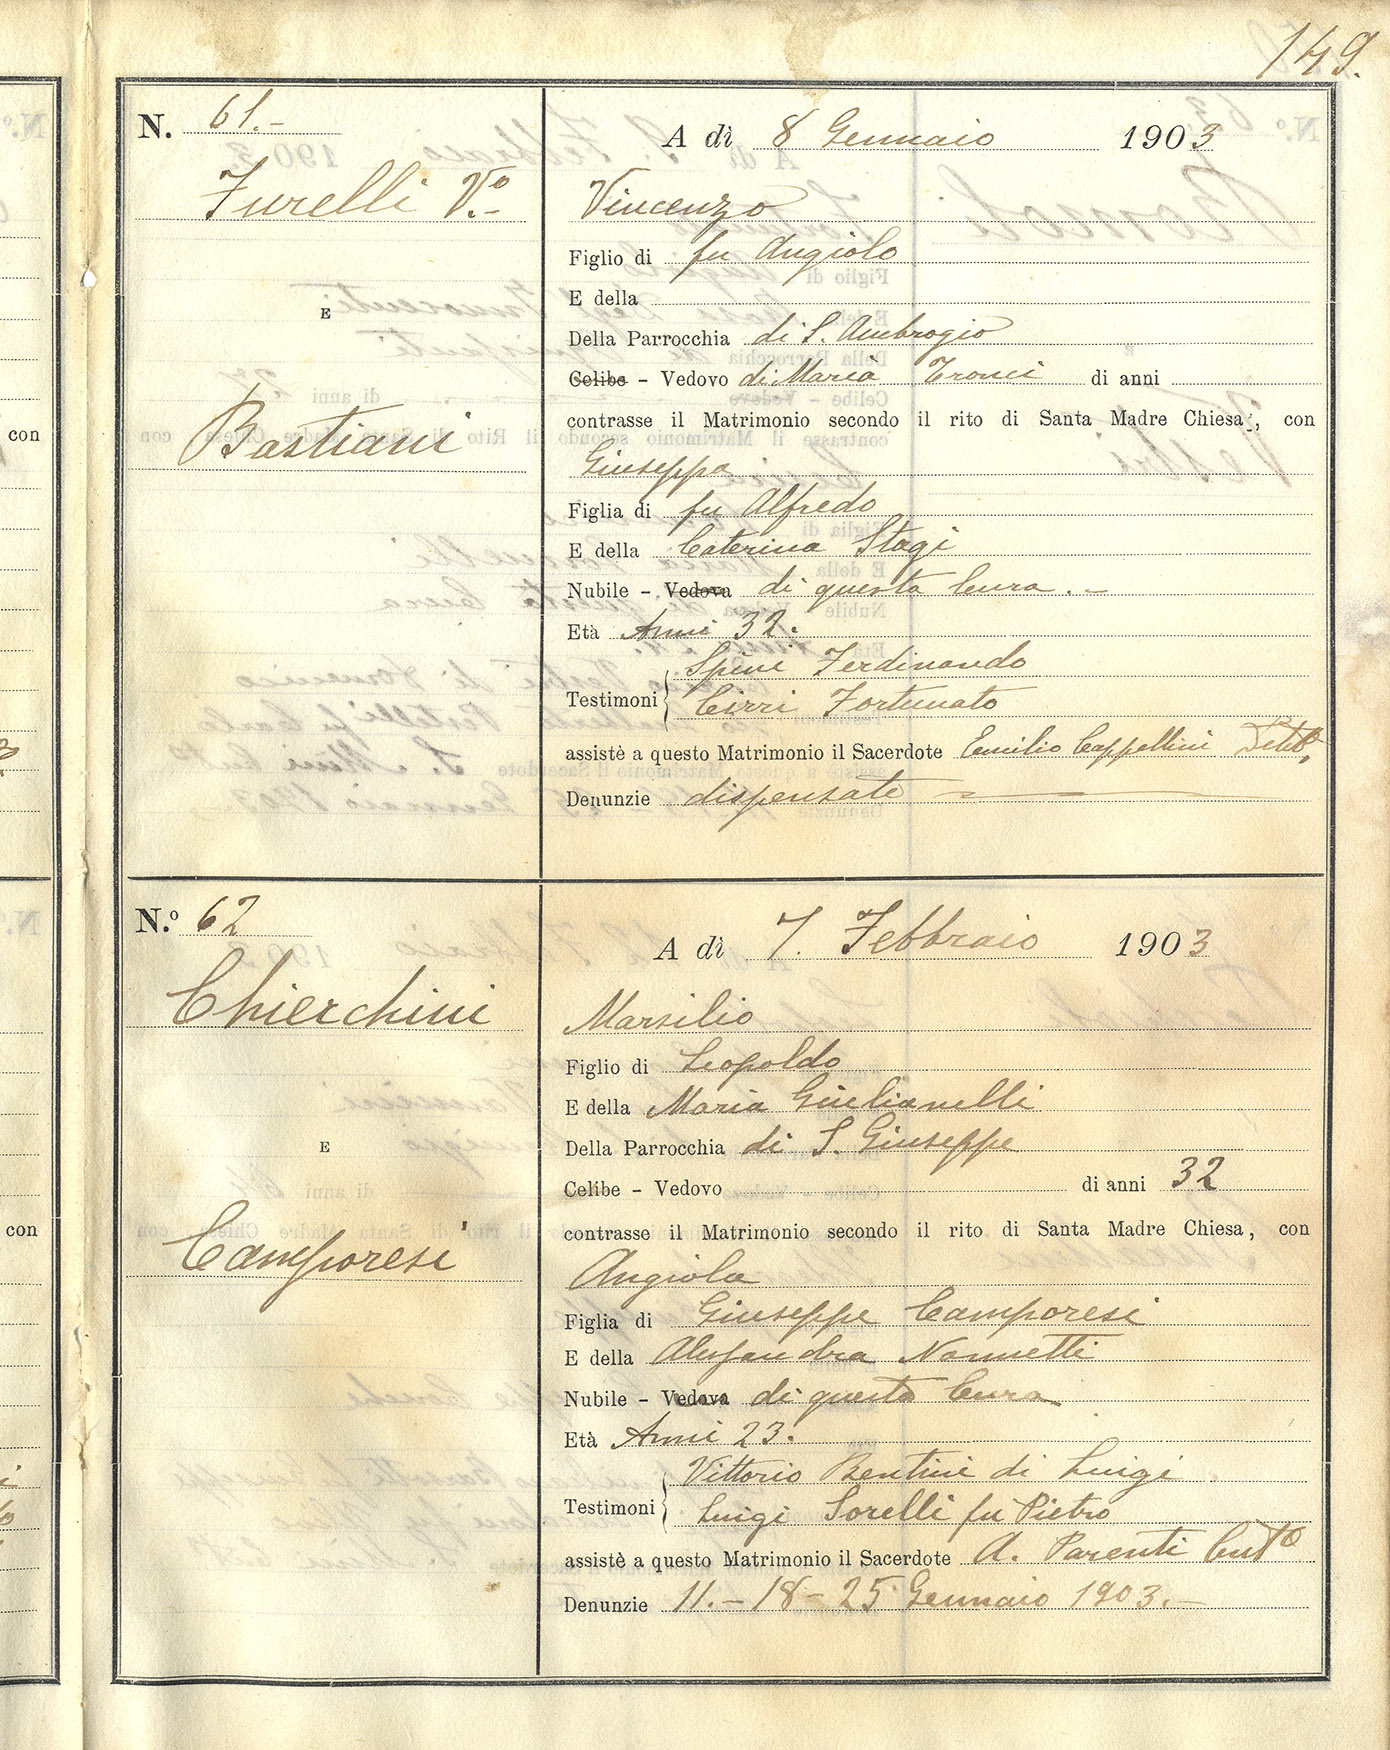 149.
N. 61.-
A dì 8 Gennaio 1903
Furelli V.º-
Vincenzo
Figlio di fu Angiolo
E della
E
Della Parrocchia di S. Ambrogio
Celibe - Vedovo di Maria Tronci di anni
contrasse il Matrimonio secondo il rito di Santa Madre Chiesa, con
Bastiani
Giuseppa
Figlia di fu Alfredo
E della Caterina Stagi
Nubile - Vedova di questa Cura.-
Età Anni 32.
Spini Ferdinando
Testimoni
Cirri Fortunato
assistè a questo Matrimonio il Sacerdote Emilio Cappellini
Denunzie dispensate
N.º 62
A dì 7. Febbraio 1903
Chierchini
Marsilio
Figlio di Leopoldo
E della Maria Giulianelli
E
Della Parrocchia di S. Giuseppe
Celibe - Vedovo di anni 32
contrasse il Matrimonio secondo il rito di Santa Madre Chiesa, con
Camporesi
Angiola
Figlia di Giuseppe Camporesi
E della Alessandra Nannetti
Nubile - Vedova di questa Cura
Età Anni 23.
Vittorio Bentini di Luigi
Testimoni
Luigi Sorelli fu Pietro
assistè a questo Matrimonio il Sacerdote A. Parenti Curº
Denunzie 11.-18-25 Gennaio 1903.-
con
con